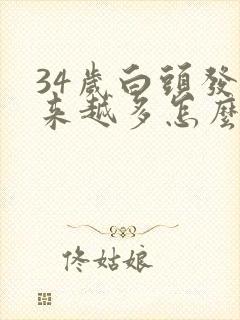 34歲白頭發
來越多怎麼
佟姑娘